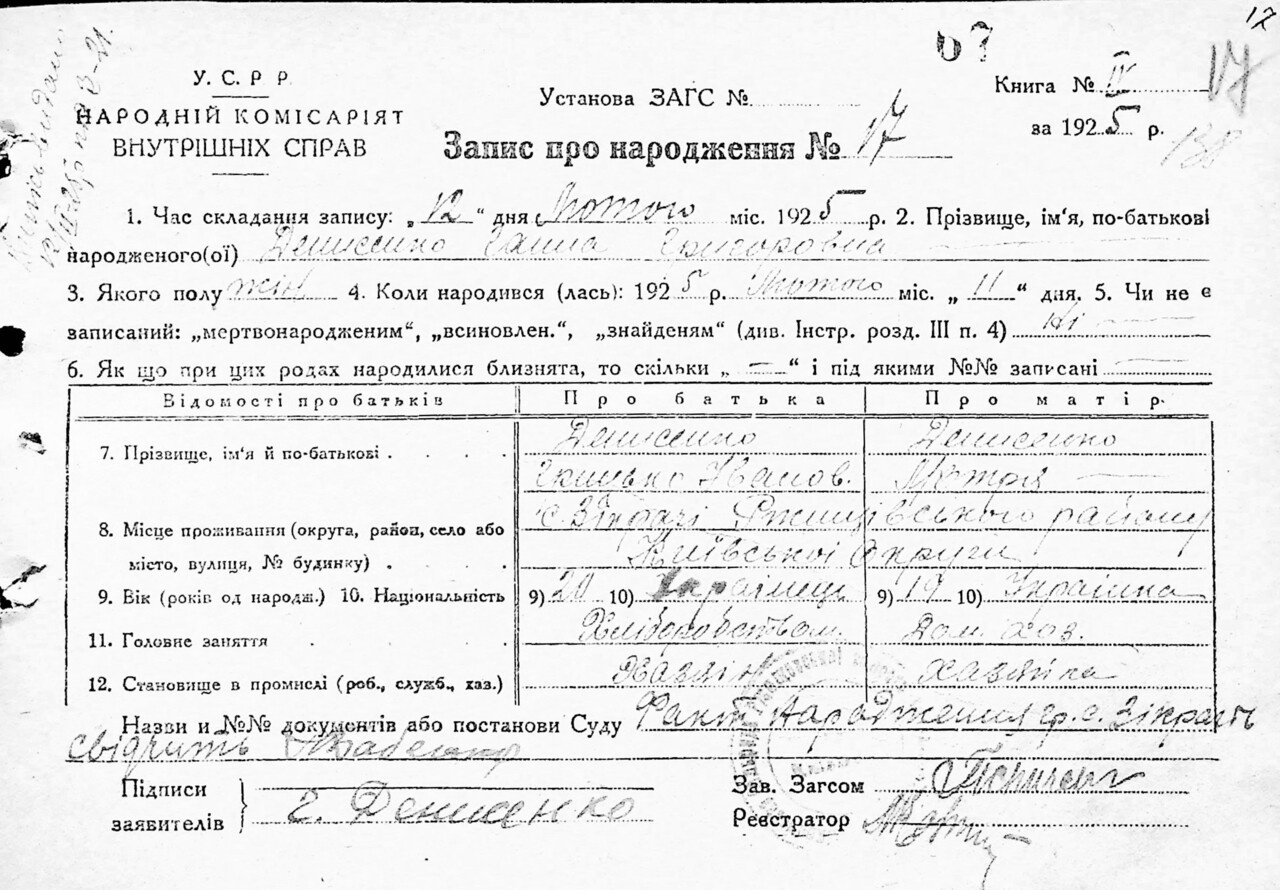 17
У. С. Р Р.
НАРОДНІЙ КОМІСАРІЯТ
ВНУТРІШНІХ СПРАВ
Установа ЗАГС №
Запис про народження № 17
Книга № IV
за 1925 р.
17
1. Час складання запису: „12“ дня Лютого міс. 1925 р. 2. Прізвище, ім'я, по-батькові
народженого(ої) Денисенко Ганна Григоровна
3. Якого полу жін 4. Коли народився (лась): 1925 р. Лютого міс. „11“ дня. 5. Чи не є
записаний: „мертвонародженим“, „всиновлен.“, „знайденям“ (див. Інстр. розд. III п. 4) Ні
6. Як що при цих родах народилися близнята, то скільки „ — “ і під якими №№ записані —
Відомості про батьків Про батька Про матір.
7. Прізвище, ім'я й по-батькові . . . . Денисенко Денисенко
Грицько Іванов. Мотря —
8. Місце проживання (округа, район, село або с. Зікрачі Ржищівського району
місто, вулиця, № будинку) . Київської Округи
9. Вік (років од народж.) 10. Національність 9) 20 10) Українець 9) 19 10) Українка
11. Головне заняття . . . Хліборобством. Дом. хоз.
12. Становище в промислі (роб., служб., хаз.) Хазяїн хазяйка
Назви и №№ документів або постанови Суду Факт народження гр. с. Зікрачь
свідчить
Підписи
заявителів Г. Денисенко
Зав. Загсом
Реєстратор